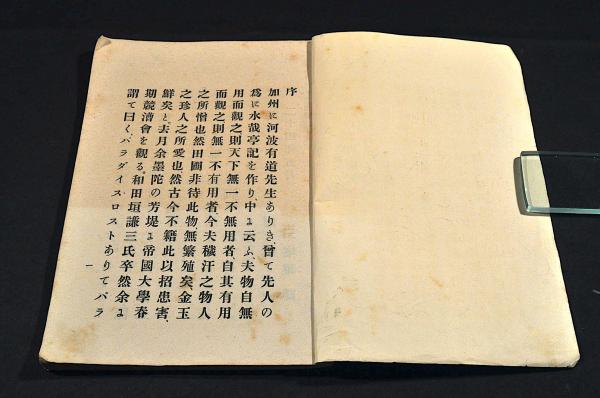 序
加州に河波有道先生ありき、曾て先人の
爲に水哉亭記を作り、中に云ふ、夫物自無
用而觀之則天下無一不無用者自其有用
而觀之則無一不有用者、今夫穢汗之物人
之所憎也然田圃非待此物無繁殖矣、金玉
之珍人之所愛也然古今不籍此以招患害、
鮮矣と、去月余墨陀の芳堤に帝國大學春
期競漕會を觀る。和田垣謙三氏卒然余に
謂て曰く、パラダイスロストありてパラ
一